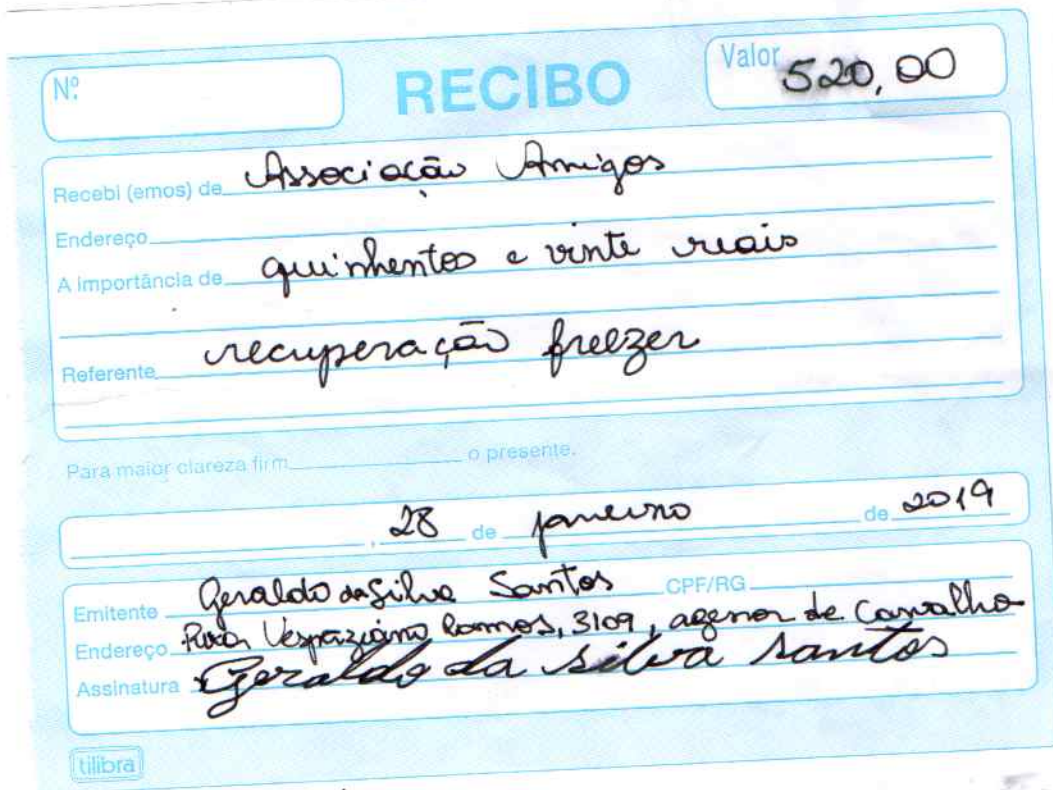 Nº
RECIBO
Valor 520,00
Recebi (emos) de Associação Amigos
Endereço
A importância de quinhentos e vinte reais
Referente recuperação freezer
Para maior clareza firm o presente.
, 28 de janeiro de 2019
Emitente Geraldo da Silva Santos CPF/RG
Endereço Rua Vespaziano Ramos, 3109, agenor de Carvalho
Assinatura Geraldo da silva santos
tilibra